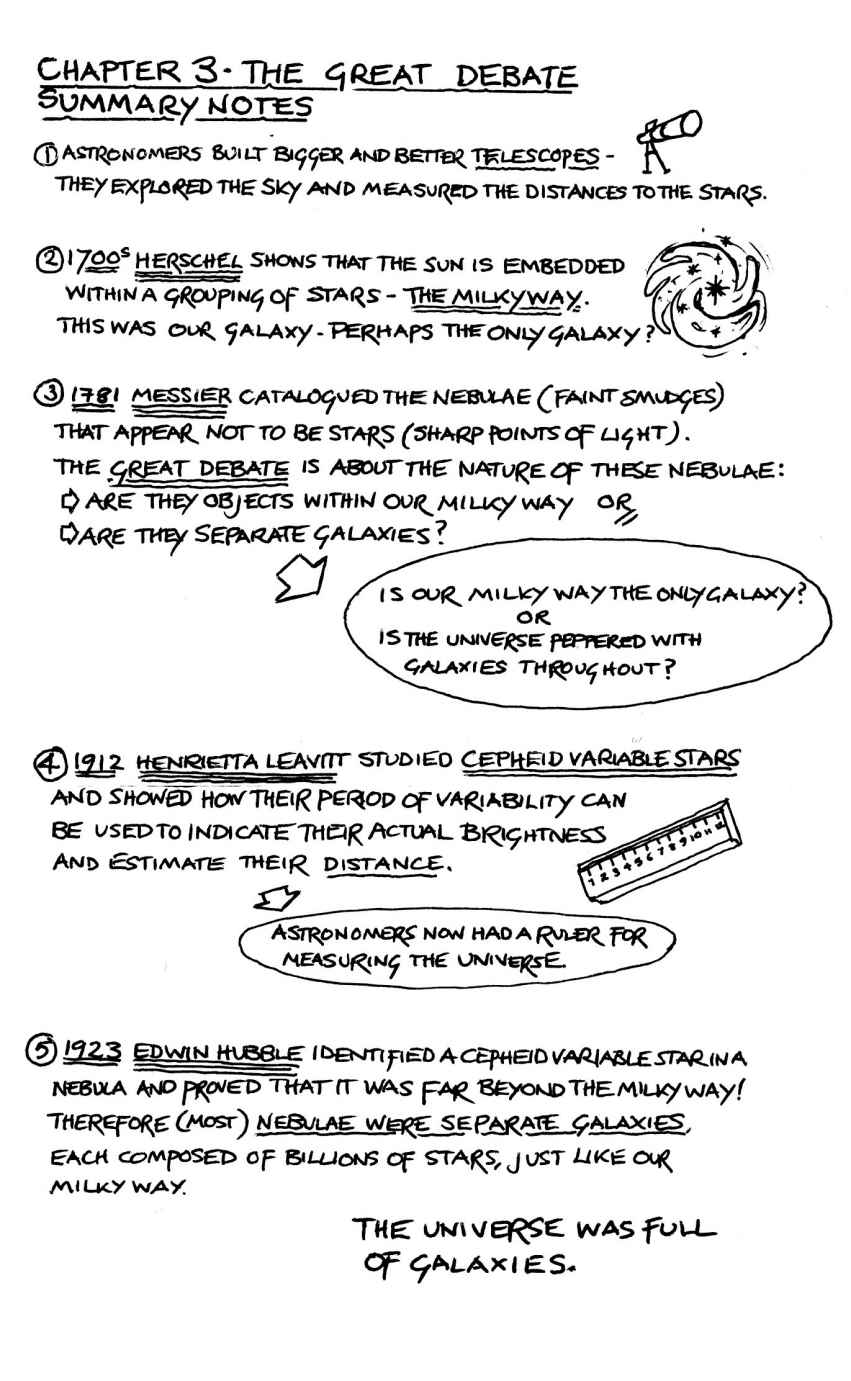 CHAPTER 3 - THE GREAT DEBATE
SUMMARY NOTES
① ASTRONOMERS BUILT BIGGER AND BETTER TELESCOPES -
THEY EXPLORED THE SKY AND MEASURED THE DISTANCES TO THE STARS.
② 1700s HERSCHEL SHOWS THAT THE SUN IS EMBEDDED
WITHIN A GROUPING OF STARS - THE MILKY WAY.
THIS WAS OUR GALAXY - PERHAPS THE ONLY GALAXY?
③ 1781 MESSIER CATALOGUED THE NEBULAE (FAINT SMUDGES)
THAT APPEAR NOT TO BE STARS (SHARP POINTS OF LIGHT).
THE GREAT DEBATE IS ABOUT THE NATURE OF THESE NEBULAE:
⇨ ARE THEY OBJECTS WITHIN OUR MILKY WAY OR
⇨ ARE THEY SEPARATE GALAXIES?
IS OUR MILKY WAY THE ONLY GALAXY?
OR
IS THE UNIVERSE PEPPERED WITH
GALAXIES THROUGHOUT?
④ 1912 HENRIETTA LEAVITT STUDIED CEPHEID VARIABLE STARS
AND SHOWED HOW THEIR PERIOD OF VARIABILITY CAN
BE USED TO INDICATE THEIR ACTUAL BRIGHTNESS
AND ESTIMATE THEIR DISTANCE.
1 2 3 4 5 6 7 8 9 10 11 12
ASTRONOMERS NOW HAD A RULER FOR
MEASURING THE UNIVERSE.
⑤ 1923 EDWIN HUBBLE IDENTIFIED A CEPHEID VARIABLE STAR IN A
NEBULA AND PROVED THAT IT WAS FAR BEYOND THE MILKY WAY!
THEREFORE (MOST) NEBULAE WERE SEPARATE GALAXIES,
EACH COMPOSED OF BILLIONS OF STARS, JUST LIKE OUR
MILKY WAY.
THE UNIVERSE WAS FULL
OF GALAXIES.